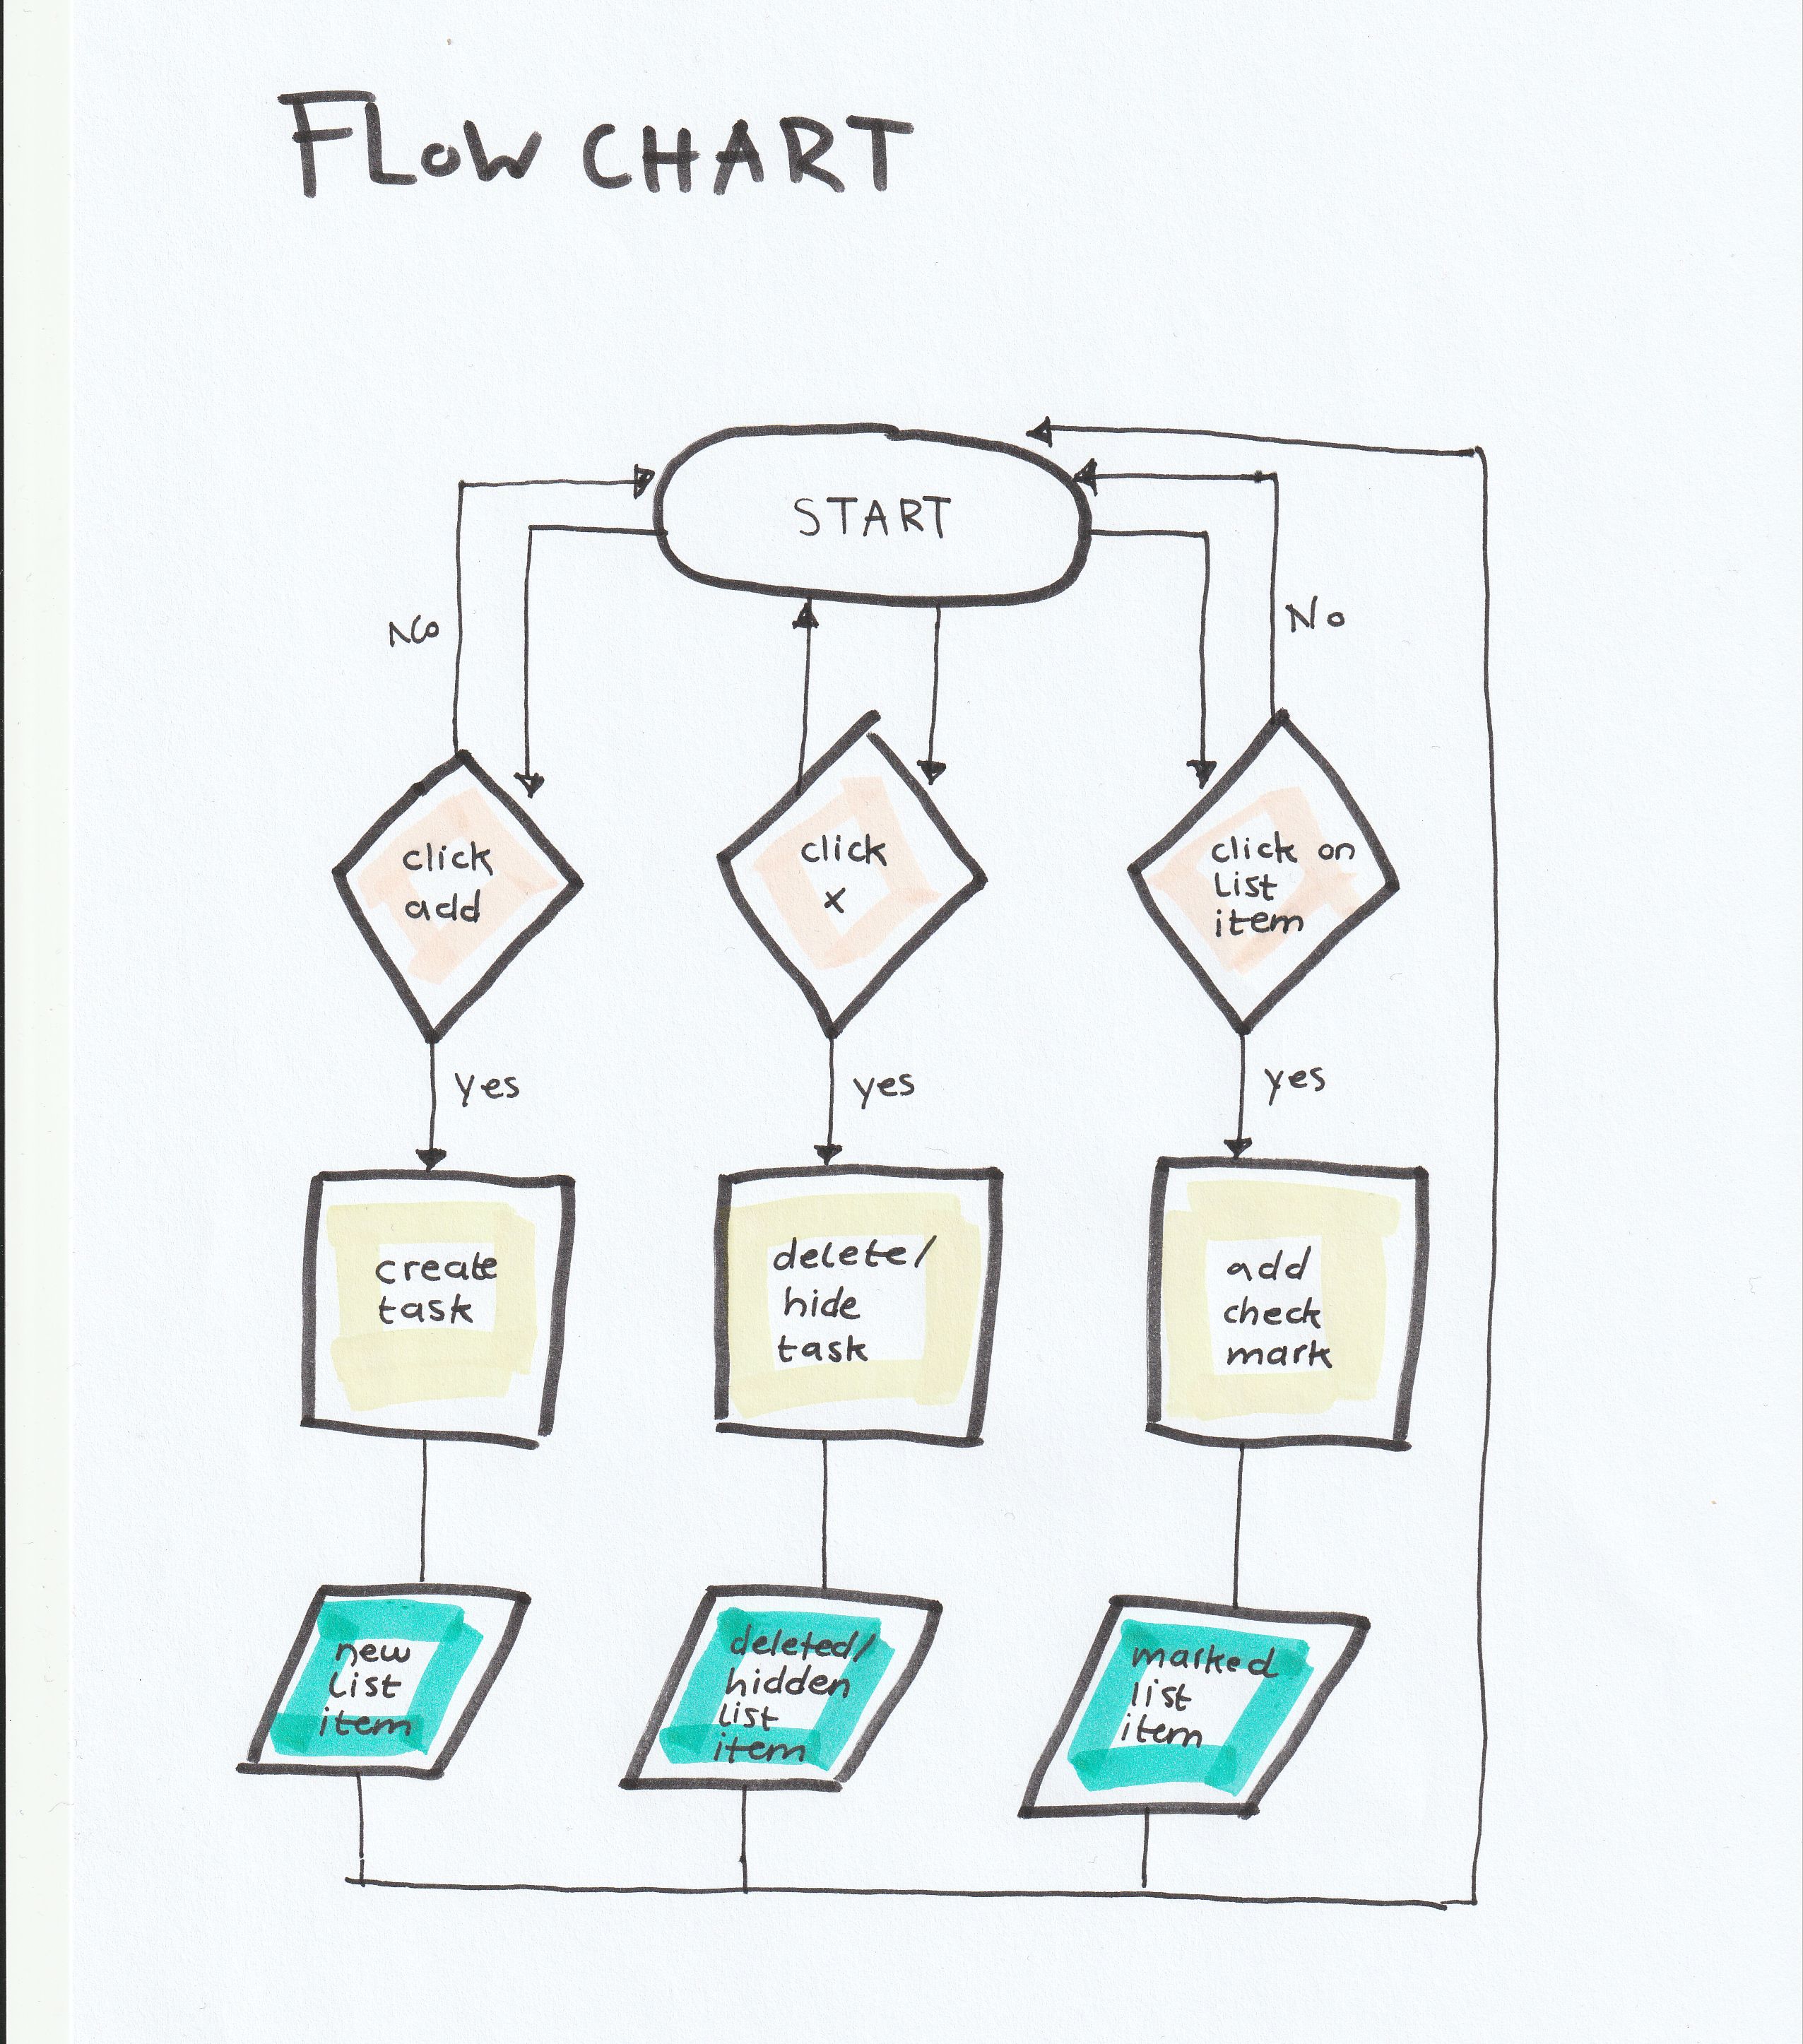 FLOW CHART
START
No
No
click
add
click
x
click on
list
item
yes
yes
yes
create
task
delete/
hide
task
add
check
mark
new
list
item
deleted/
hidden
list
item
marked
list
item